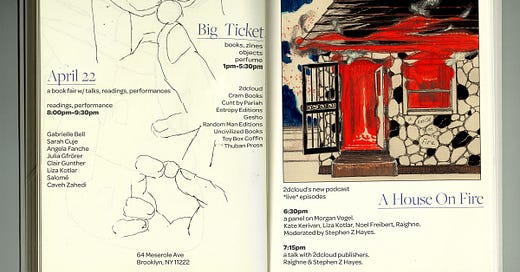 Big Ticket
books, zines
objects
perfume
1pm-5:30pm
April 22
a book fair w/ talks, readings, performances
readings, performance
8:00pm-9:30pm
Gabrielle Bell
Sarah Cuje
Angela Fanche
Julia Gfrörer
Clair Gunther
Liza Kotlar
Salomé
Caveh Zahedi
2dcloud
Cram Books
Cunt by Pariah
Entropy Editions
Gesho
Random Man Editions
Uncivilized Books
Toy Box Coffin
Thuban Press
64 Meserole Ave
Brooklyn, NY 11222
A HOUSE
ON
FIRE
2dcloud's new podcast
*live* episodes
A House On Fire
6:30pm
a panel on Morgan Vogel.
Kate Kerivan, Liza Kotlar, Noel Freibert, Raighne.
Moderated by Stephen Z Hayes.
7:15pm
a talk with 2dcloud publishers.
Raighne & Stephen Z Hayes.